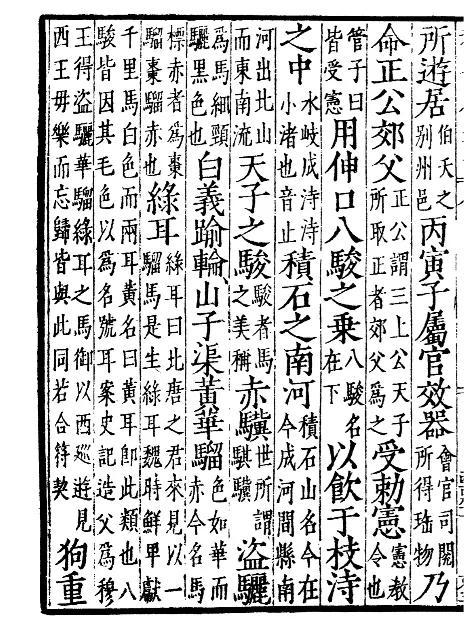 所遊居伯夭之别州邑丙寅子屬官效器會官司閱所得珤物乃
命正公郊父正公謂三上公天子所取正者郊父爲之受勅憲憲教令也
管子曰皆受憲用伸口八駿之乗八駿名在下以飲于枝洔
之中水岐成洔洔小渚也音止積石之南河積石山名今在今成河間縣南
河出北山而東南流天子之駿駿者馬之美稱赤驥世所謂騏驥盗驪
爲馬細頸驪黑色也白義踰輪山子渠黄華騮色如華而赤今名馬
標赤者爲棗騮棗騮赤也綠耳綠耳曰北唐之君來見以一騮馬是生綠耳魏時鮮卑獻
千里馬白色而兩耳黄名曰黄耳即此類也八駿皆因其毛色以爲名號耳案史記造父爲穆
王得盜驪華騮綠耳之馬御以西巡遊見西王毋樂而忘歸皆與此同若合符契狗重